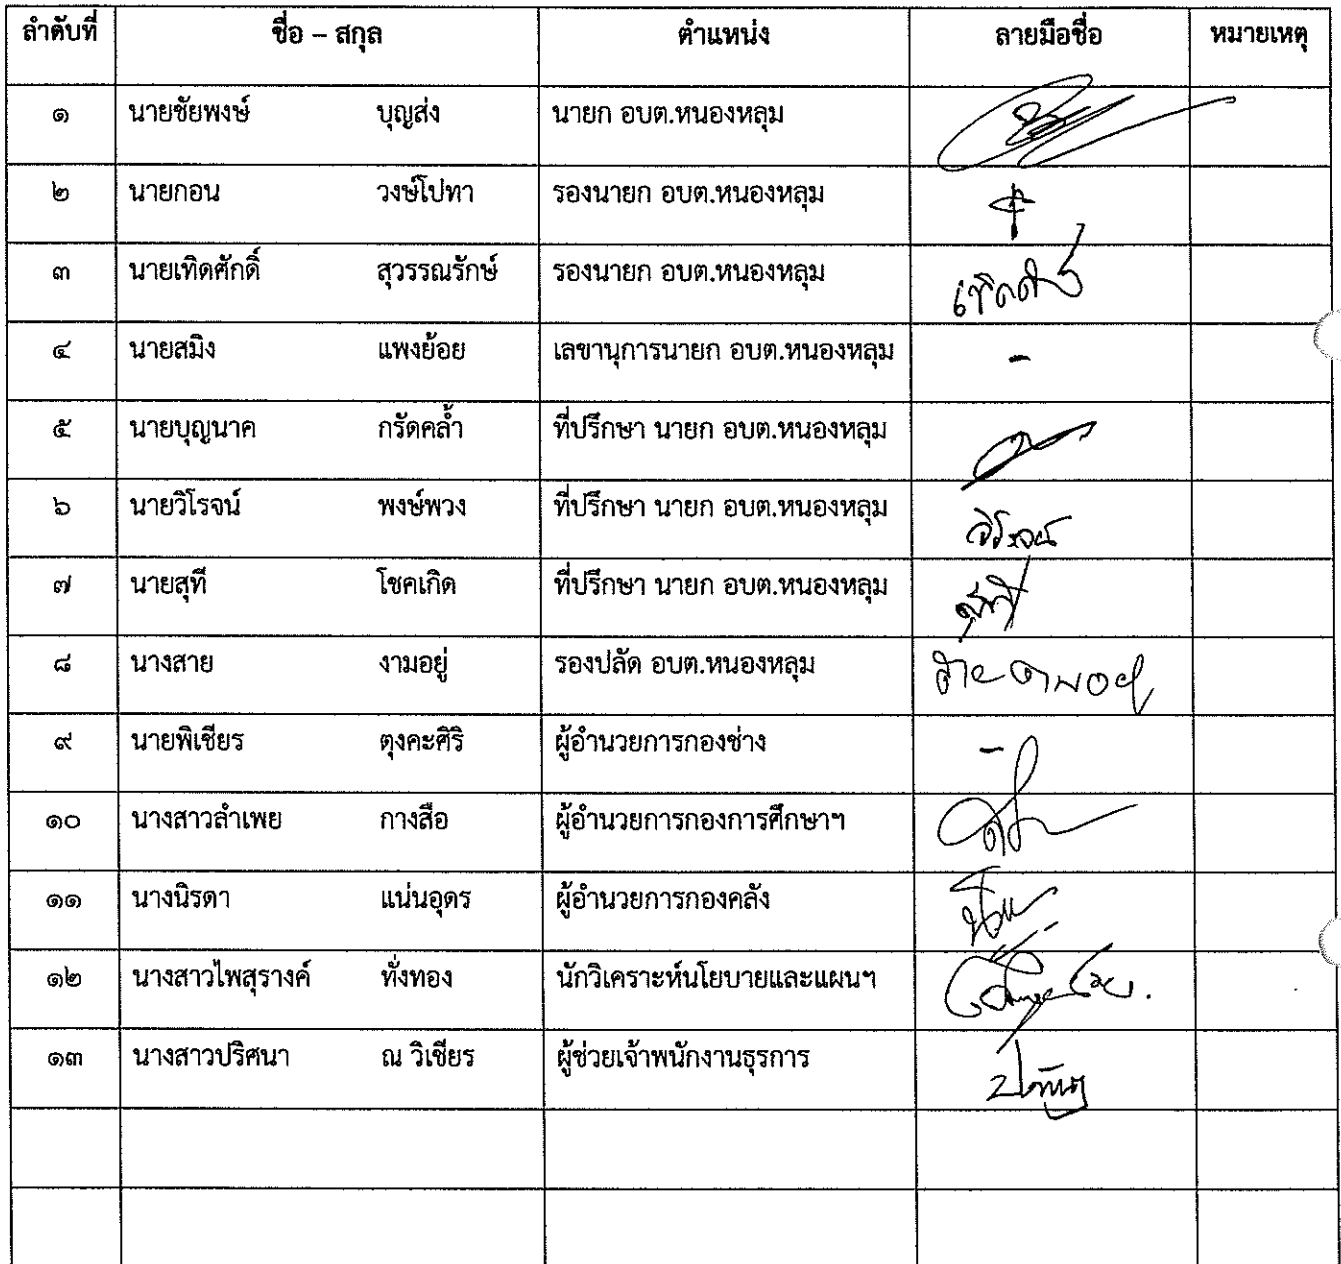 ลำดับที่ ชื่อ – สกุล ตำแหน่ง ลายมือชื่อ หมายเหตุ
๑ นายชัยพงษ์ บุญส่ง นายก อบต.หนองหลุม
๒ นายกอน วงษ์โปทา รองนายก อบต.หนองหลุม
๓ นายเทิดศักดิ์ สุวรรณรักษ์ รองนายก อบต.หนองหลุม
๔ นายสมิง แพงย้อย เลขานุการนายก อบต.หนองหลุม -
๕ นายบุญนาค กรัดคล้ำ ที่ปรึกษา นายก อบต.หนองหลุม
๖ นายวิโรจน์ พงษ์พวง ที่ปรึกษา นายก อบต.หนองหลุม วิโรจน์
๗ นายสุที โชคเกิด ที่ปรึกษา นายก อบต.หนองหลุม
๘ นางสาย งามอยู่ รองปลัด อบต.หนองหลุม สาย งามอยู่
๙ นายพิเชียร ตุงคะศิริ ผู้อำนวยการกองช่าง -
๑๐ นางสาวลำเพย กางสือ ผู้อำนวยการกองการศึกษาฯ
๑๑ นางนิรดา แน่นอุดร ผู้อำนวยการกองคลัง
๑๒ นางสาวไพสุรางค์ ทั่งทอง นักวิเคราะห์นโยบายและแผนฯ
๑๓ นางสาวปริศนา ณ วิเชียร ผู้ช่วยเจ้าพนักงานธุรการ